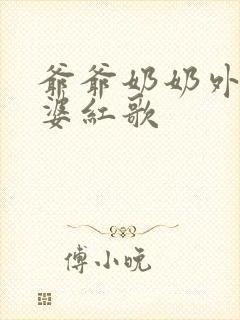 爺爺奶奶外
婆紅歌
傅小晥